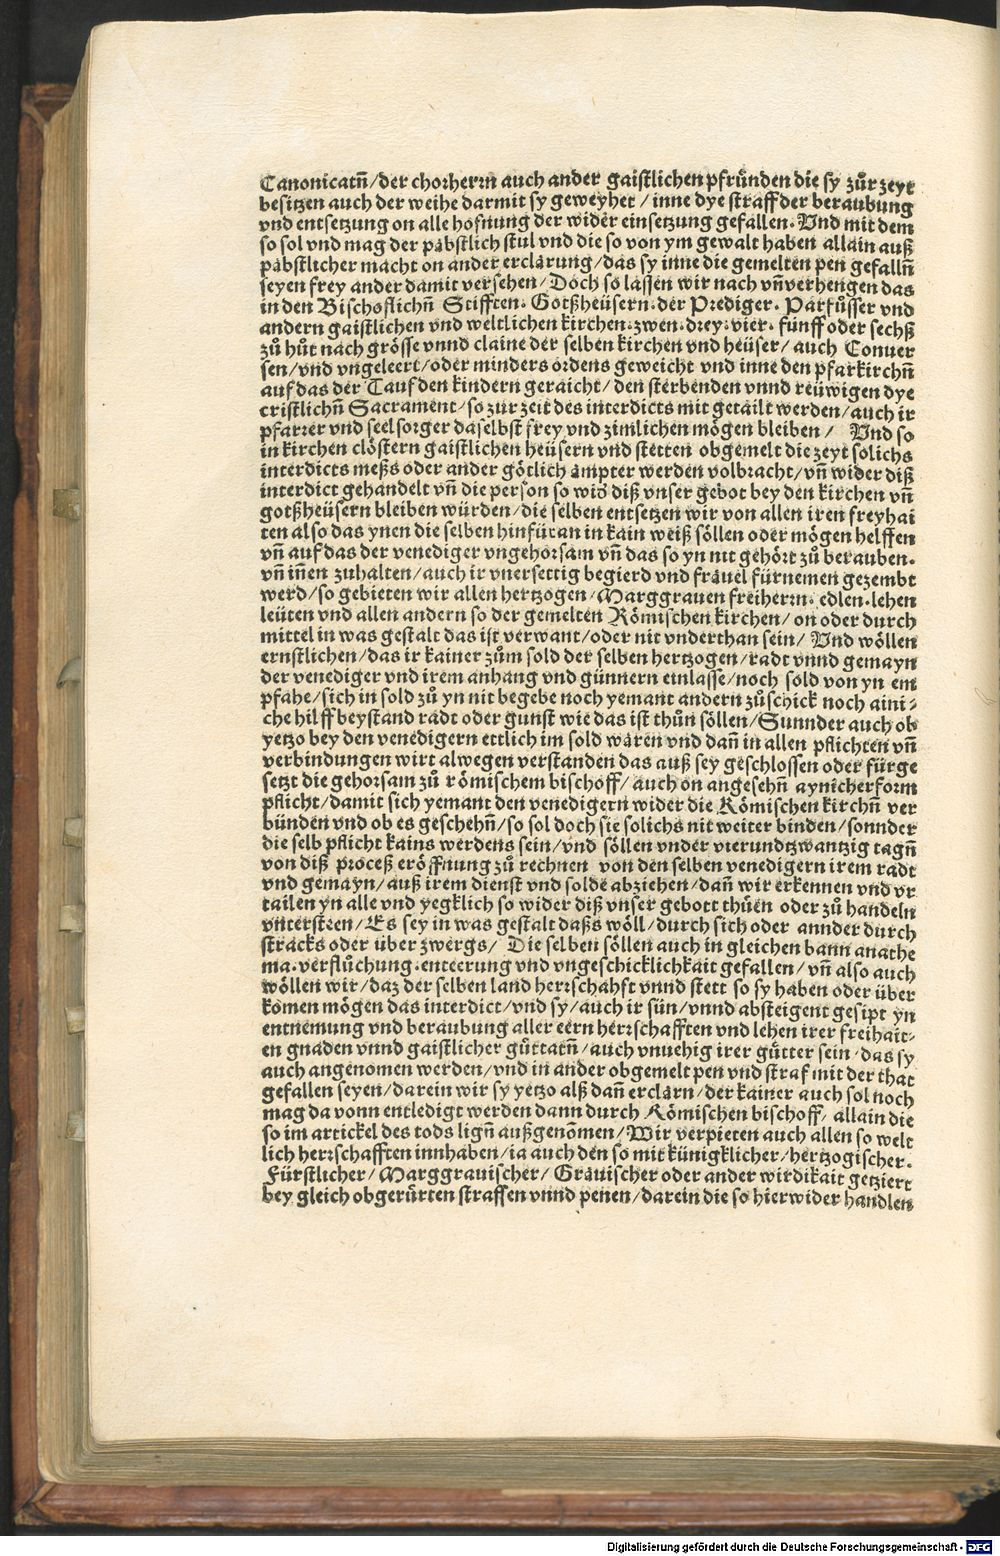 Canonicatn̄/der chorherrn auch ander gaistlichen pfrůnden die sy zůr zeyt
besitzen auch der weihe darmit sy geweyhet / inne dye straff der beraubung
vnd entsetzung on alle hofnung der wider einsetzung gefallen. Vnd mit dem
so sol vnd mag der păbstlich stul vnd die so von ym gewalt haben allain auß
păbstlicher macht on ander erclărung/das sy inne die gemelten pen gefalln̄
seyen frey ander damit versehen/ Doch so lassen wir nach vn̄verhengen das
in den Bischoflichn̄ Stifften. Gotßheüsern. der Prediger. Parfůsser vnd
andern gaistlichen vnd weltlichen kirchen. zwen. drey. vier. fünff oder sechß
zů hůt nach grösse vnnd claine der selben kirchen vnd heüser/ auch Conuer
sen/vnd vngeleert/oder minders ordens geweicht vnd inne den pfarkirchn̄
auf das der Tauf den kindern geraicht/den sterbenden vnnd reüwigen dye
cristlichn̄ Sacrament/so zur zeit des interdicts mit getailt werden/auch ir
pfarrer vnd seelsorger daselbst frey vnd zimlichen mögen bleiben/ Vnd so
in kirchen clöstern gaistlichen heüsern vnd stetten obgemelt die zeyt solichs
interdicts meßs oder ander götlich ămpter werden volbracht/vn̄ wider diß
interdict gehandelt vn̄ die person so wid̄ diß vnser gebot bey den kirchen vn̄
gotßheüsern bleiben würden/die selben entsetzen wir von allen iren freyhai
ten also das ynen die selben hinfüran in kain weiß söllen oder mögen helffen
vn̄ auf das der venediger vngehorsam vn̄ das so yn nit gehört zů berauben.
vn̄ in̄en zuhalten/auch ir vnersettig begierd vnd frăuel fürnemen gezembt
werd/so gebieten wir allen hertzogen/Marggrauen freiherrn. edlen. lehen
leüten vnd allen andern so der gemelten Römischen kirchen/on oder durch
mittel in was gestalt das ist verwant/oder nit vnderthan sein/ Vnd wöllen
ernstlichen/das ir kainer zům sold der selben hertzogen/radt vnnd gemayn
der venediger vnd irem anhang vnd günnern einlasse/noch sold von yn em
pfahe/sich in sold zů yn nit begebe noch yemant andern zůschick noch aini-
che hilff beystand radt oder gunst wie das ist thůn söllen/Sunnder auch ob
yetzo bey den venedigern ettlich im sold wăren vnd dan̄ in allen pflichten vn̄
verbindungen wirt alwegen verstanden das auß sey geschlossen oder fürge
setzt die gehorsam zů römischem bischoff/auch on angesehn̄ aynicherform
pflicht/damit sich yemant den venedigern wider die Römischen kirchn̄ ver
bünden vnd ob es geschehn̄/so sol doch sie solichs nit weiter binden/sonnder
die selb pflicht kains werdens sein/vnd söllen vnder vierundtzwantzig tagn̄
von diß proceß eröffnung zů rechnen von den selben venedigern irem radt
vnd gemayn/auß irem dienst vnd solde abziehen/dan̄ wir erkennen vnd vr
tailen yn alle vnd yegklich so wider diß vnser gebott thüen oder zů handeln
vnterstren/Es sey in was gestalt daßs wöll/durch sich oder annder durch
stracks oder über zwergs/ Die selben söllen auch in gleichen bann anathe
ma. verflůchung. enteerung vnd vngeschicklichkait gefallen/vn̄ also auch
wöllen wir/daz der selben land herrschahft vnnd stett so sy haben oder über
komen mögen das interdict/vnd sy/auch ir sün/vnnd absteigent gesipt yn
entnemung vnd beraubung aller eern herrschafften vnd lehen irer freihait-
en gnaden vnnd gaistlicher gůttatn̄/auch vnuehig irer gůtter sein. das sy
auch angenomen werden/vnd in ander obgemelt pen vnd straf mit der that
gefallen seyen/darein wir sy yetzo alß dan̄ erclărn/der kainer auch sol noch
mag da vonn entledigt werden dann durch Römischen bischoff/ allain die
so im artickel des tods lign̄ außgenom̄en/Wir verpieten auch allen so welt
lich herrschafften innhaben/ia auch den so mit künigklicher/hertzogischer.
Fürstlicher/Marggrauischer/ Grăuischer oder ander wirdikait getziert
bey gleich obgerürten straffen vnnd penen/darein die so hierwider handlen
Digitalisierung gefördert durch die Deutsche Forschungsgemeinschaft - DFG